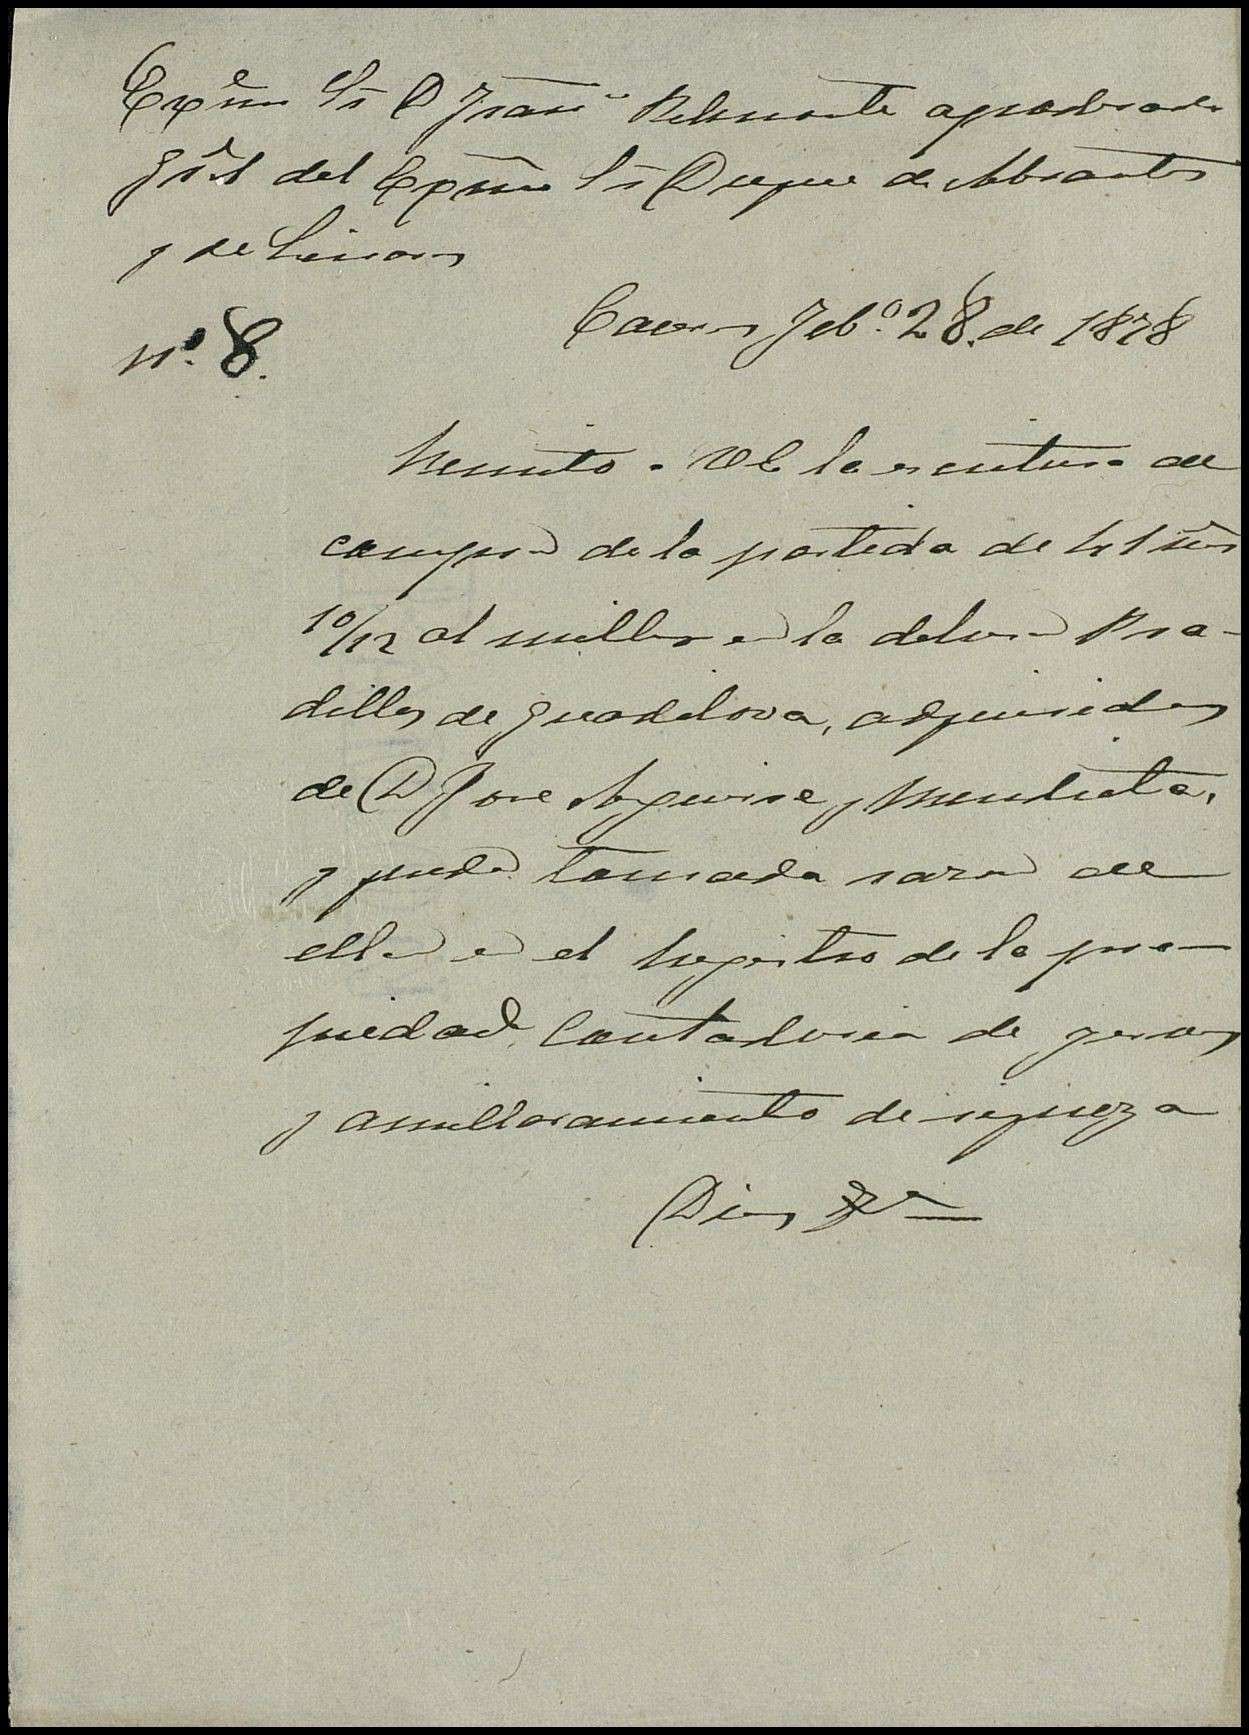 Exmo Sr D Franco Belmonte apoderado
Gral del Exmo Sr Duque de Abrantes
y de Linares
Caceres Febo. 28. de 1878
no. 8.
Remito a VE la escritura de
compra de la partida de
10/12 al millar en la dehesa Pra-
dillos de Guadilova, adquiridos
de D Jose Aguirre y Mendieta,
y queda tomada razon de
ella en el Registro de la pro-
piedad, Contaduria de
y amillaramiento de riqueza
Dios &a